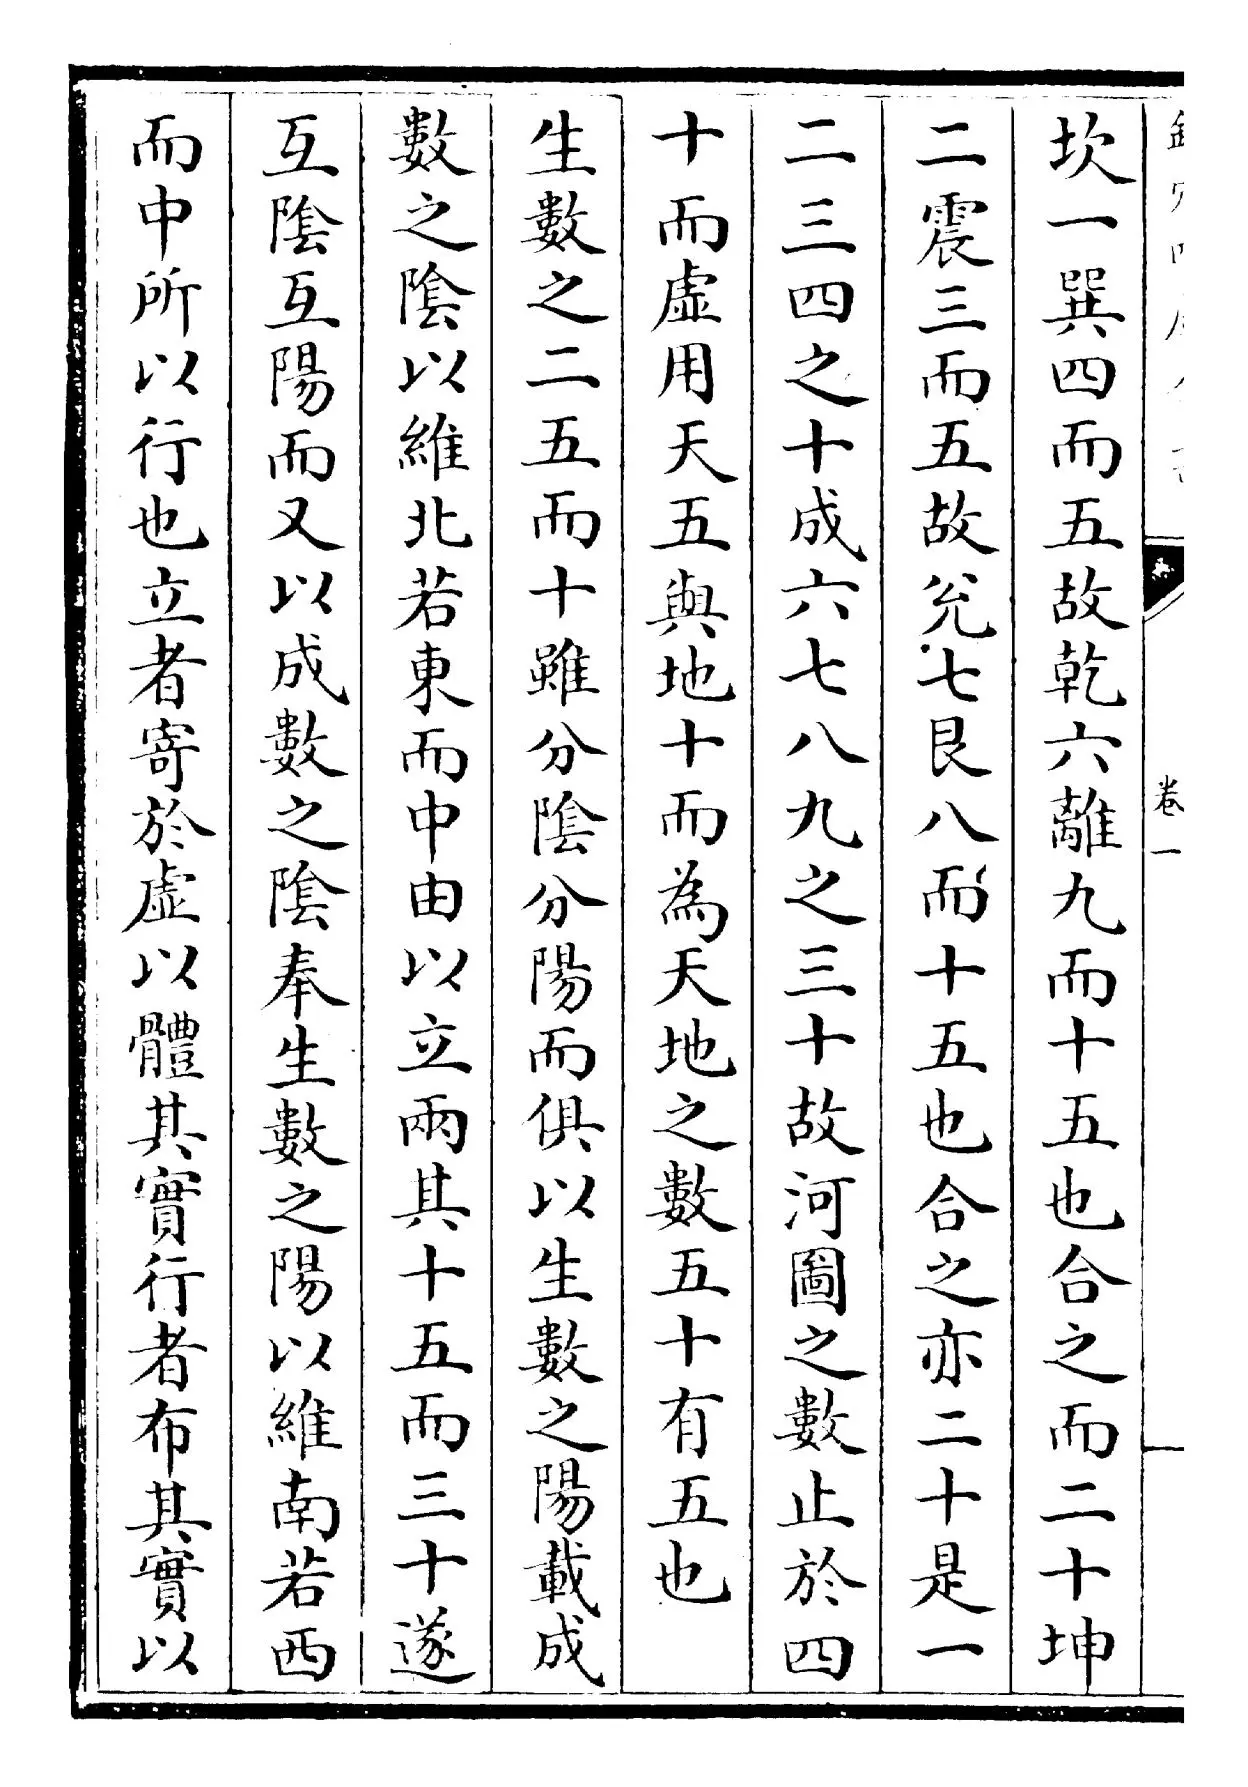 卷一
坎一巽四而五故乾六離九而十五也合之而二十坤
二震三而五故兊七艮八而十五也合之亦二十是一
二三四之十成六七八九之三十故河圖之數止於四
十而虛用天五與地十而為天地之數五十有五也
生數之二五而十雖分陰分陽而俱以生數之陽載成
數之陰以維北若東而中由以立兩其十五而三十遂
互陰互陽而又以成數之陰奉生數之陽以維南若西
而中所以行也立者寄於虛以體其實行者布其實以